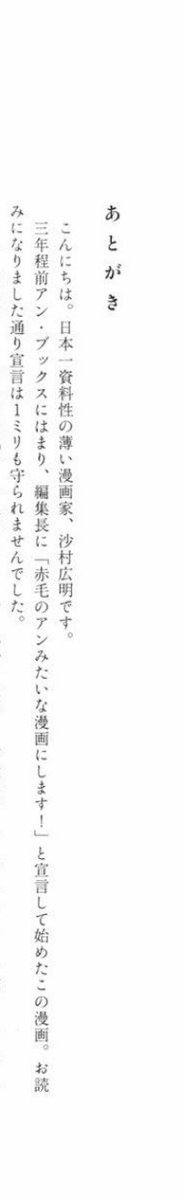 あとがき
こんにちは。日本一資料性の薄い漫画家、沙村広明です。
三年程前アン・ブックスにはまり、編集長に「赤毛のアンみたいな漫画にします！」と宣言して始めたこの漫画。お読
みになりました通り宣言は1ミリも守られませんでした。